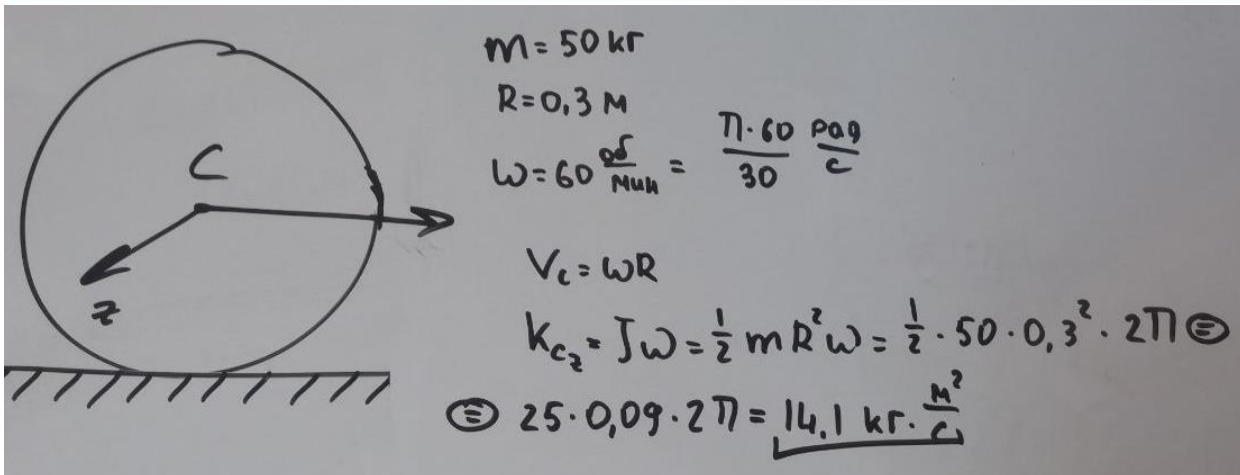 C
z
m = 50 кг
R = 0,3 м
ω = 60 об/мин = π·60/30 рад/с
Vc = ωR
Kcz = Jω = 1/2 mR²ω = 1/2 · 50 · 0,3² · 2π ⊜
⊜ 25 · 0,09 · 2π = 14,1 кг · м²/с